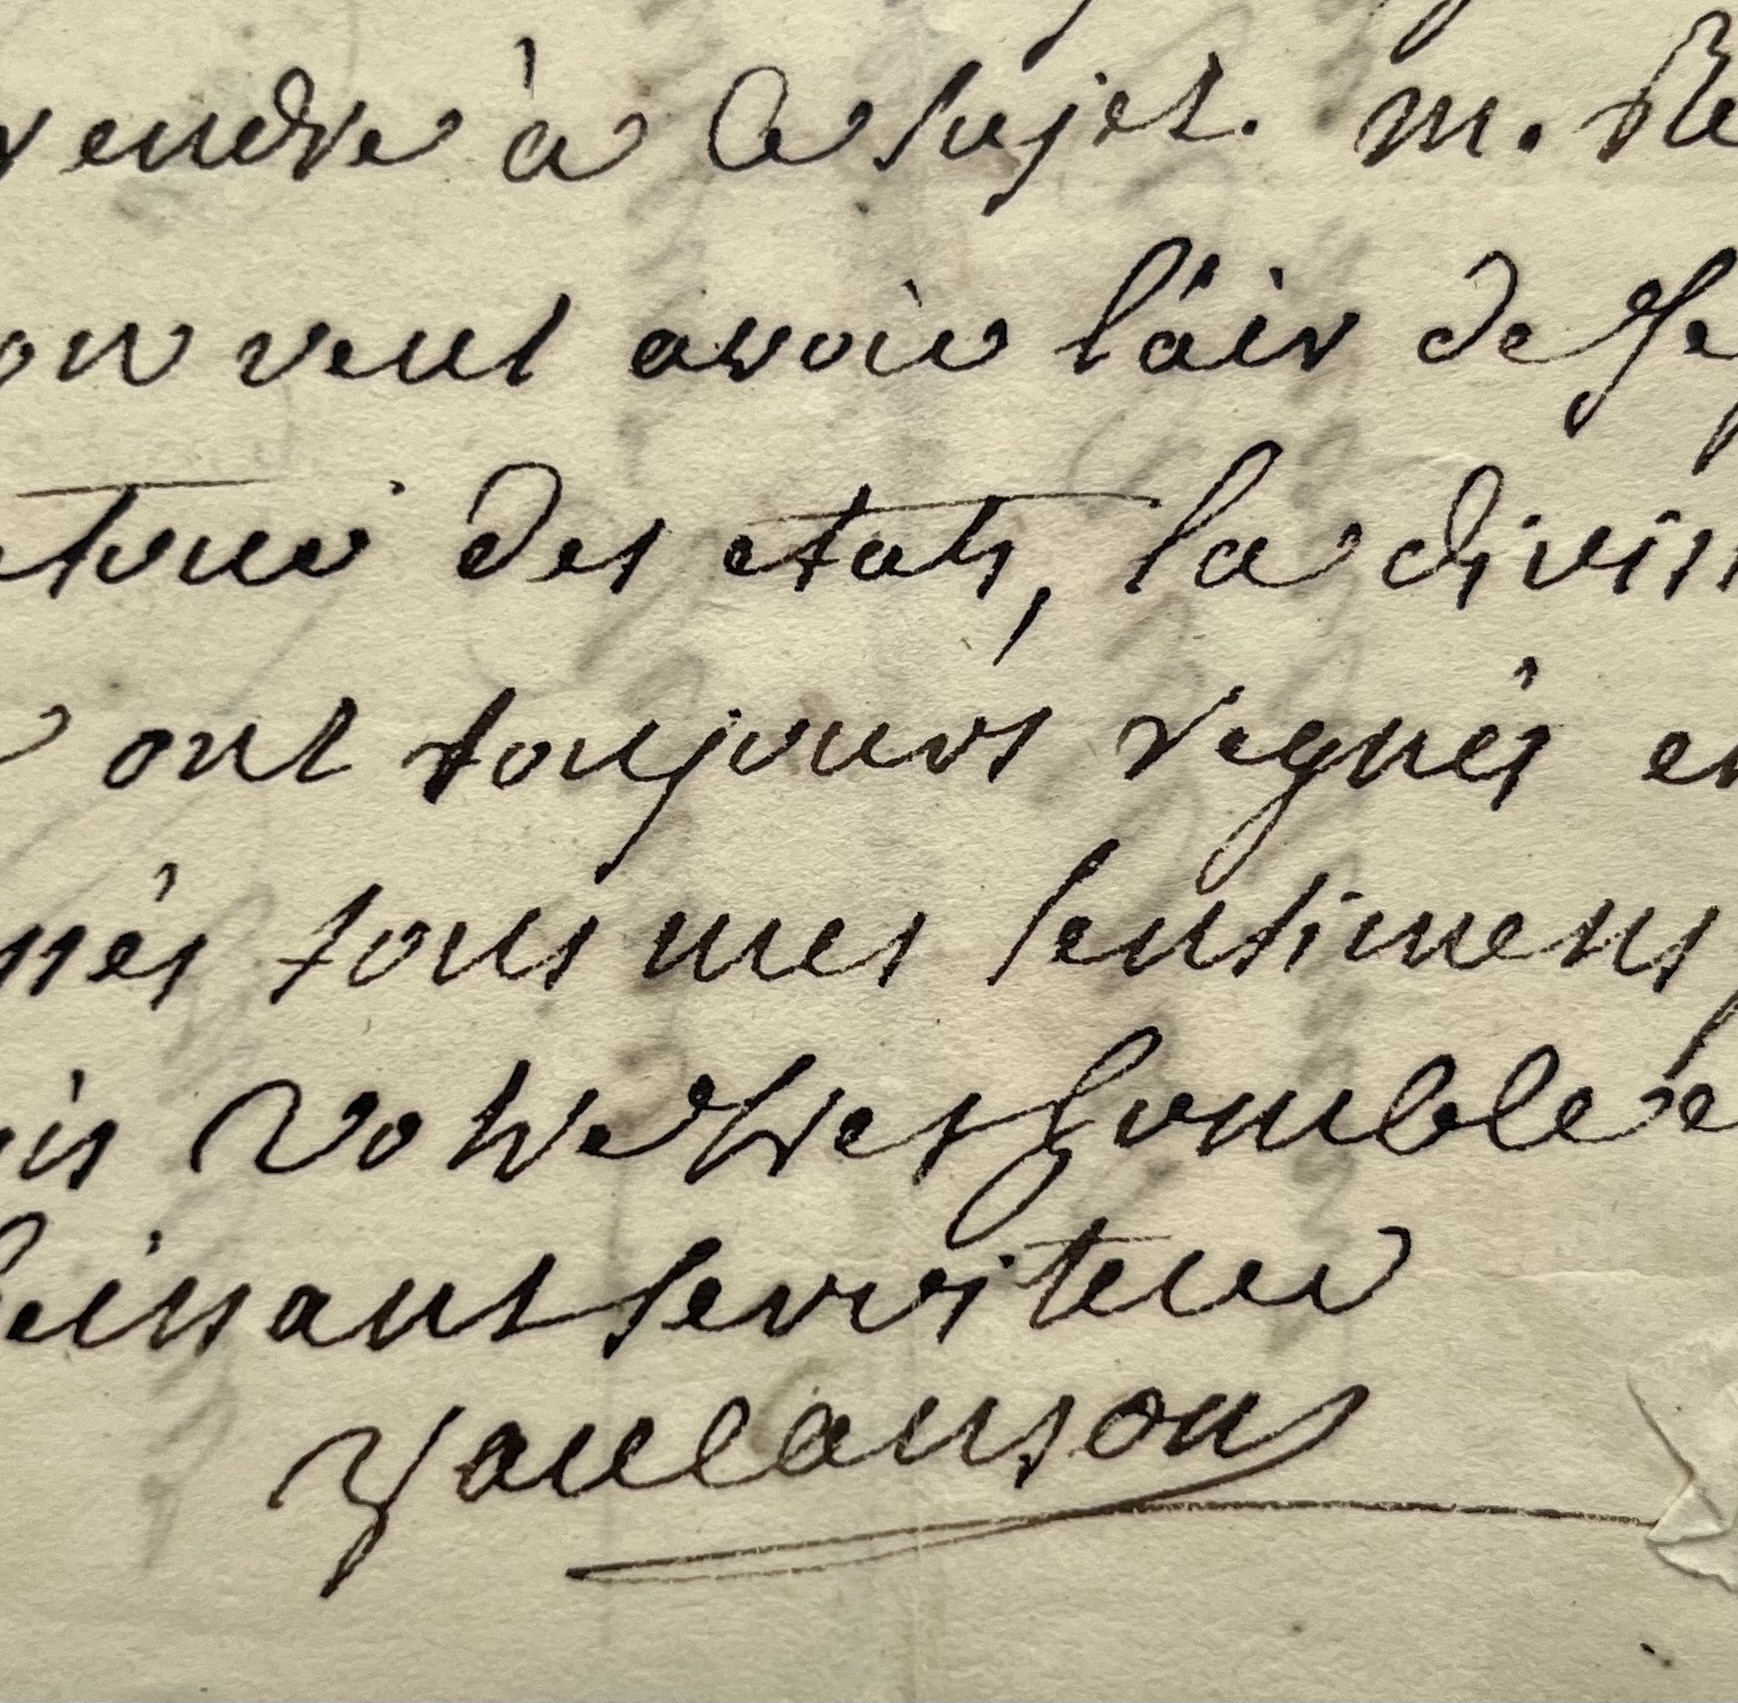 rendre à ce sujet. m. Re
on veut avoir l'air de se
tour des etats, la divis
ont toujours regnés en
nés tous mes sentimens
is votre tres homble e
beissant serviteur
Vaulanson